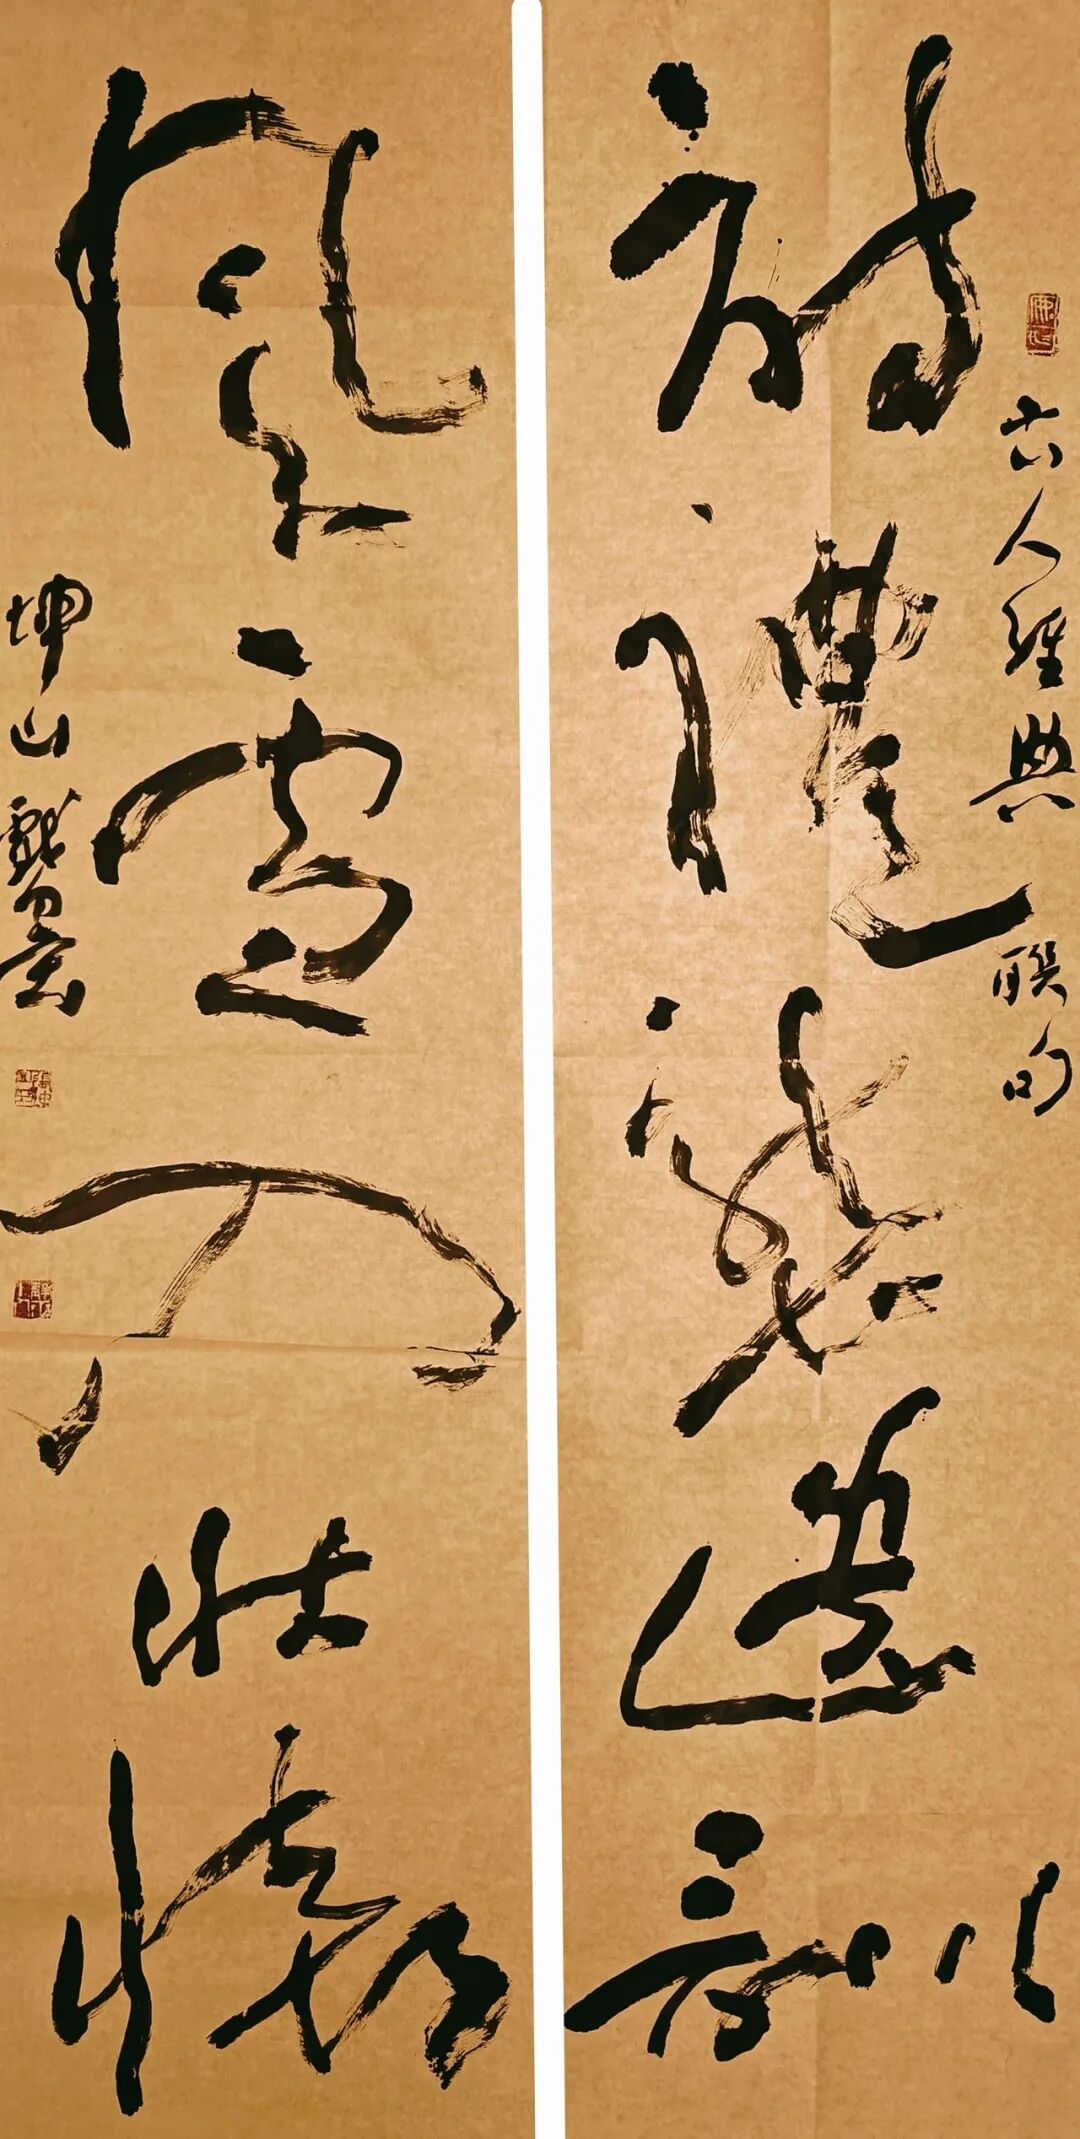 古人經典聯句
詩禮襲遺訓
風雲入壯懷
坤山戲墨